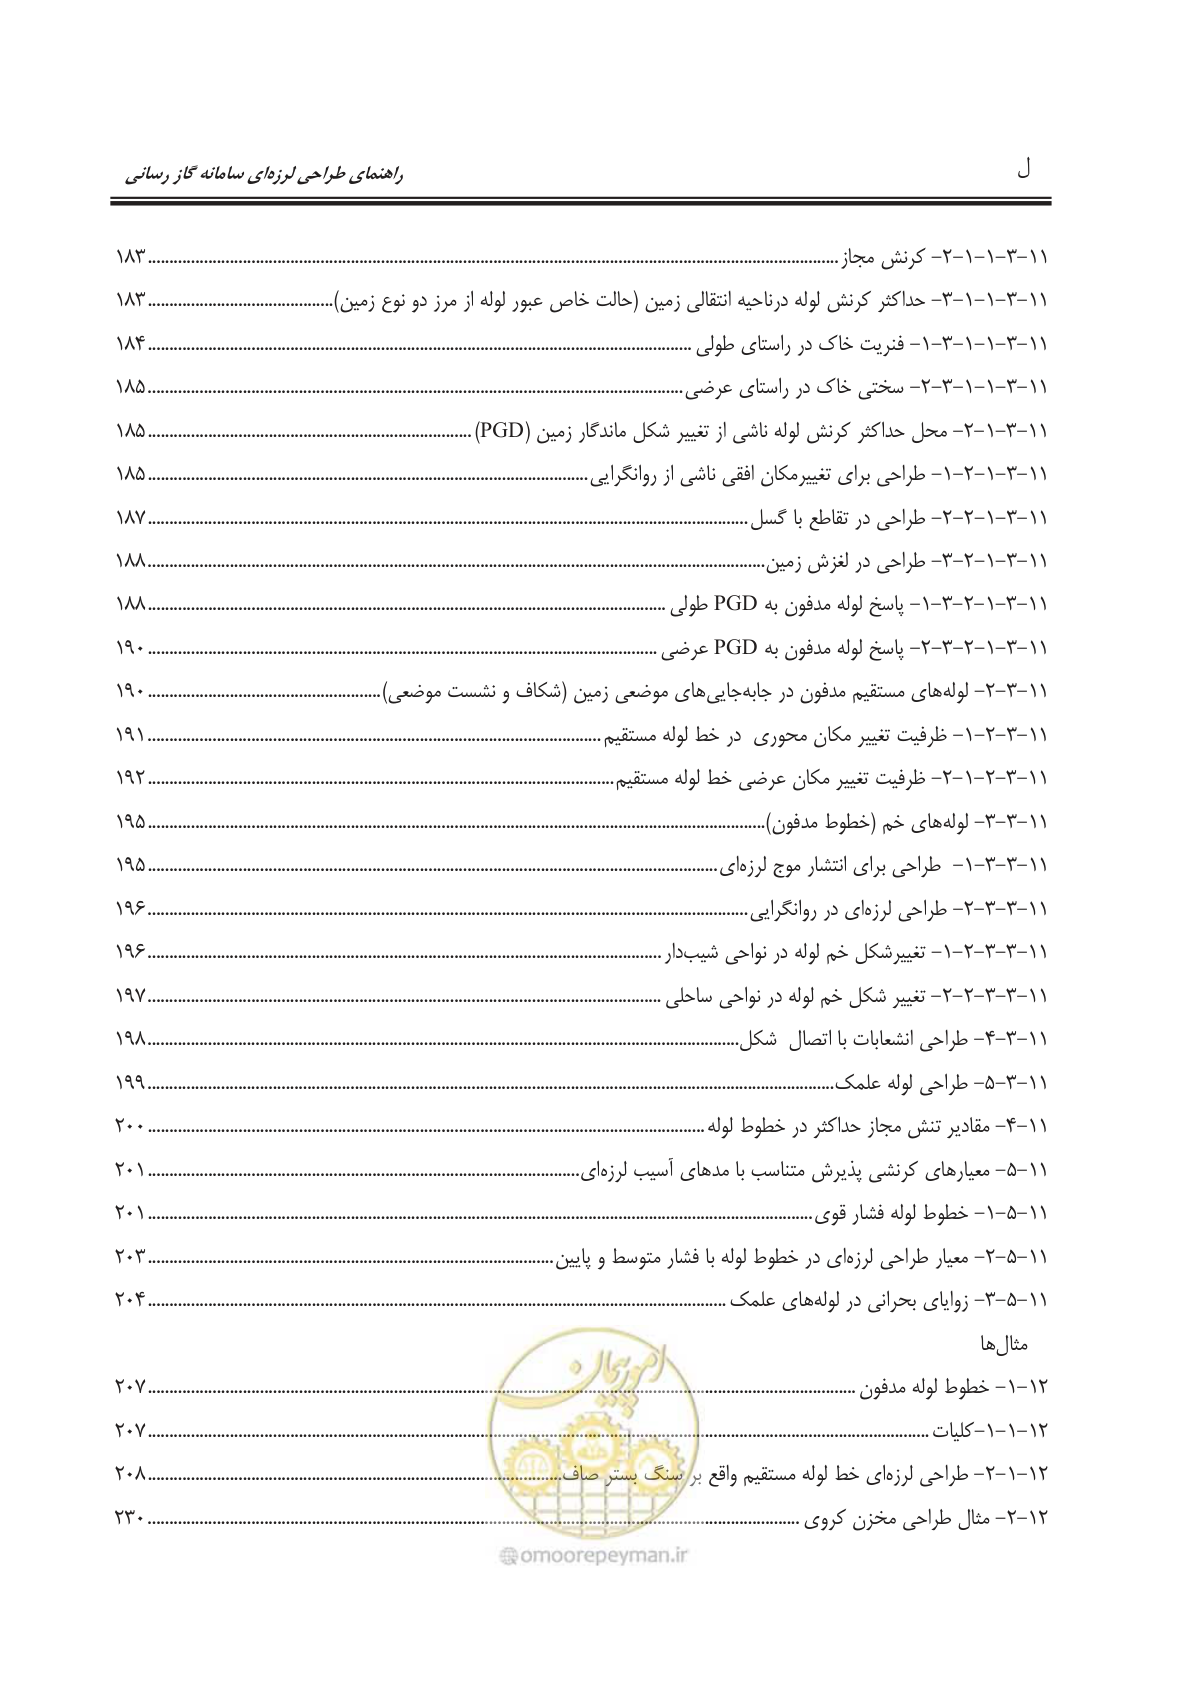 ل
راهنمای طراحی لرزه‌ای سامانه گاز رسانی
۱۱-۳-۱-۱-۲- کرنش مجاز ........ ۱۸۳
۱۱-۳-۱-۱-۳- حداکثر کرنش لوله درناحیه انتقالی زمین (حالت خاص عبور لوله از مرز دو نوع زمین) ........ ۱۸۳
۱۱-۳-۱-۱-۳-۱- فنریت خاک در راستای طولی ........ ۱۸۴
۱۱-۳-۱-۱-۳-۲- سختی خاک در راستای عرضی ........ ۱۸۵
۱۱-۳-۱-۲- محل حداکثر کرنش لوله ناشی از تغییر شکل ماندگار زمین (PGD) ........ ۱۸۵
۱۱-۳-۱-۲-۱- طراحی برای تغییرمکان افقی ناشی از روانگرایی ........ ۱۸۵
۱۱-۳-۱-۲-۲- طراحی در تقاطع با گسل ........ ۱۸۷
۱۱-۳-۱-۲-۳- طراحی در لغزش زمین ........ ۱۸۸
۱۱-۳-۱-۲-۳-۱- پاسخ لوله مدفون به PGD طولی ........ ۱۸۸
۱۱-۳-۱-۲-۳-۲- پاسخ لوله مدفون به PGD عرضی ........ ۱۹۰
۱۱-۳-۲- لوله‌های مستقیم مدفون در جابه‌جایی‌های موضعی زمین (شکاف و نشست موضعی) ........ ۱۹۰
۱۱-۳-۲-۱- ظرفیت تغییر مکان محوری در خط لوله مستقیم ........ ۱۹۱
۱۱-۳-۲-۱-۲- ظرفیت تغییر مکان عرضی خط لوله مستقیم ........ ۱۹۲
۱۱-۳-۳- لوله‌های خم (خطوط مدفون) ........ ۱۹۵
۱۱-۳-۳-۱- طراحی برای انتشار موج لرزه‌ای ........ ۱۹۵
۱۱-۳-۳-۲- طراحی لرزه‌ای در روانگرایی ........ ۱۹۶
۱۱-۳-۳-۲-۱- تغییرشکل خم لوله در نواحی شیب‌دار ........ ۱۹۶
۱۱-۳-۳-۲-۲- تغییر شکل خم لوله در نواحی ساحلی ........ ۱۹۷
۱۱-۳-۴- طراحی انشعابات با اتصال شکل ........ ۱۹۸
۱۱-۳-۵- طراحی لوله علمک ........ ۱۹۹
۱۱-۴- مقادیر تنش مجاز حداکثر در خطوط لوله ........ ۲۰۰
۱۱-۵- معیارهای کرنشی پذیرش متناسب با مدهای آسیب لرزه‌ای ........ ۲۰۱
۱۱-۵-۱- خطوط لوله فشار قوی ........ ۲۰۱
۱۱-۵-۲- معیار طراحی لرزه‌ای در خطوط لوله با فشار متوسط و پایین ........ ۲۰۳
۱۱-۵-۳- زوایای بحرانی در لوله‌های علمک ........ ۲۰۴
مثال‌ها
۱۲-۱- خطوط لوله مدفون ........ ۲۰۷
۱۲-۱-۱-کلیات ........ ۲۰۷
۱۲-۱-۲- طراحی لرزه‌ای خط لوله مستقیم واقع بر سنگ بستر صاف ........ ۲۰۸
۱۲-۲- مثال طراحی مخزن کروی ........ ۲۳۰
امور پیمان
@omoorepeyman.ir